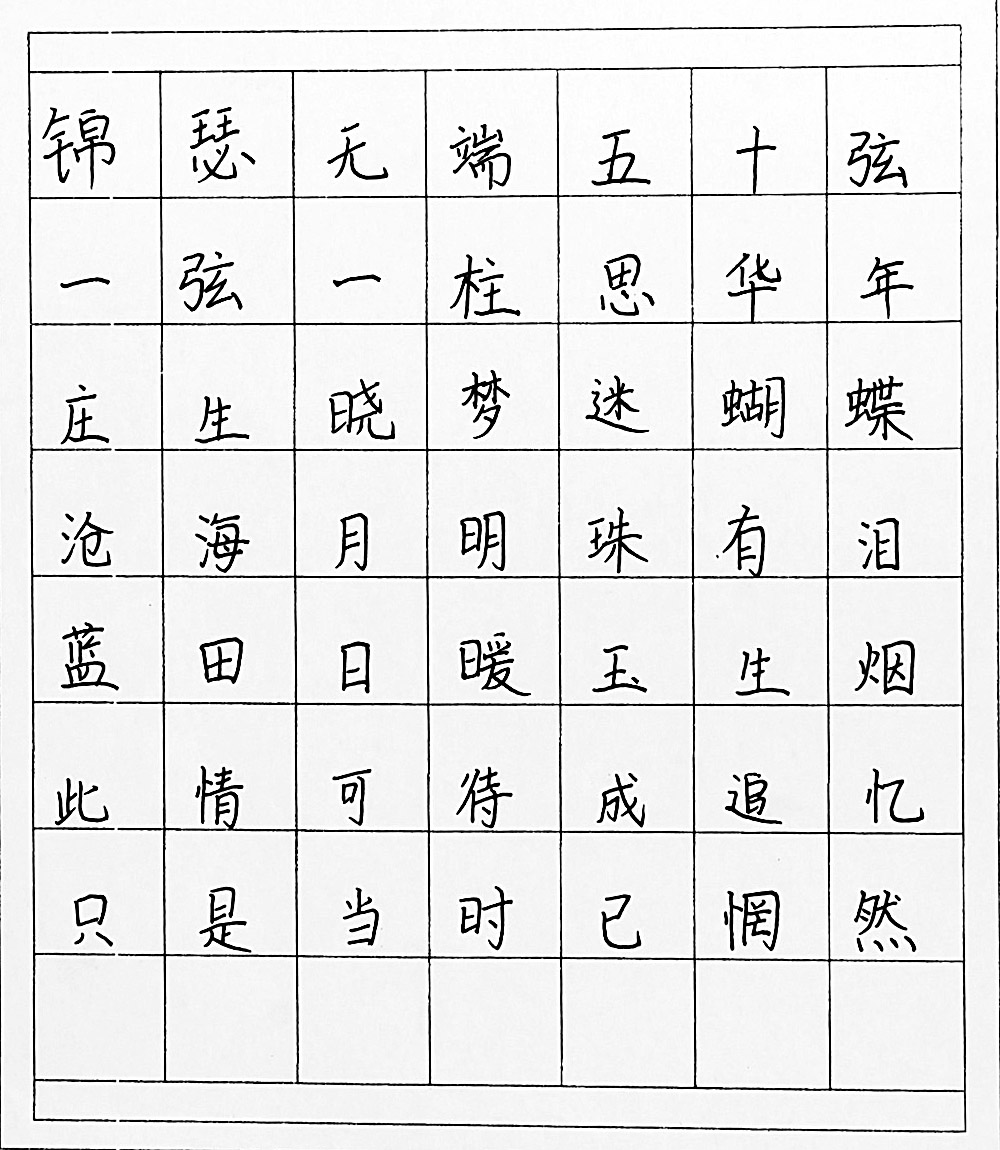 锦瑟无端五十弦
一弦一柱思华年
庄生晓梦迷蝴蝶
沧海月明珠有泪
蓝田日暖玉生烟
此情可待成追忆
只是当时已惘然